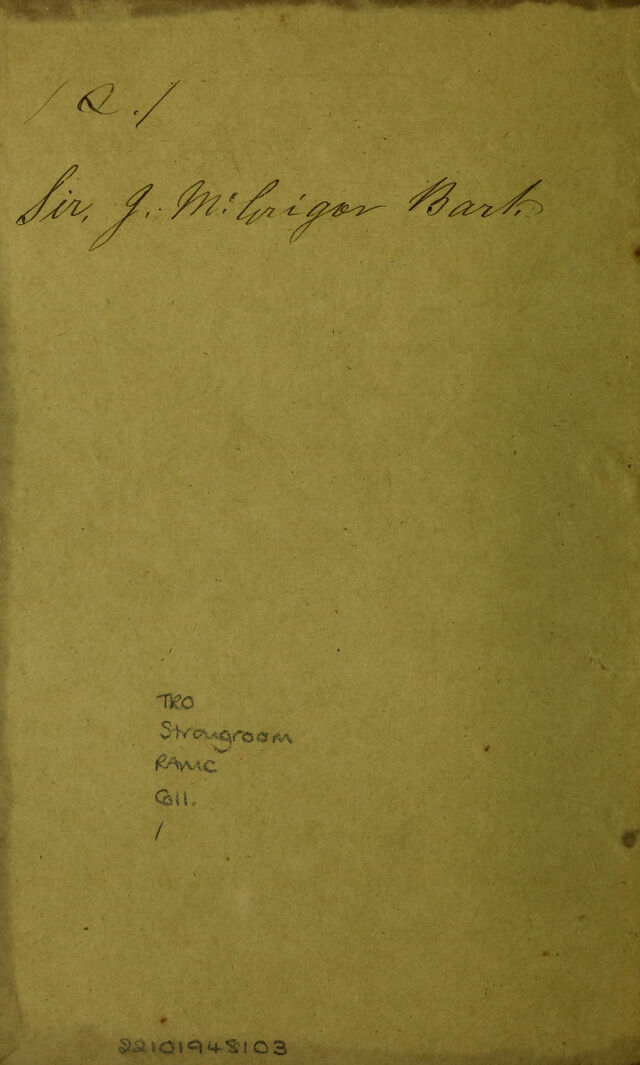 / Q. /
Sir, J. McGrigor Bart.
TRO
Strongroom
RAMC
Coll.
/
22101948103